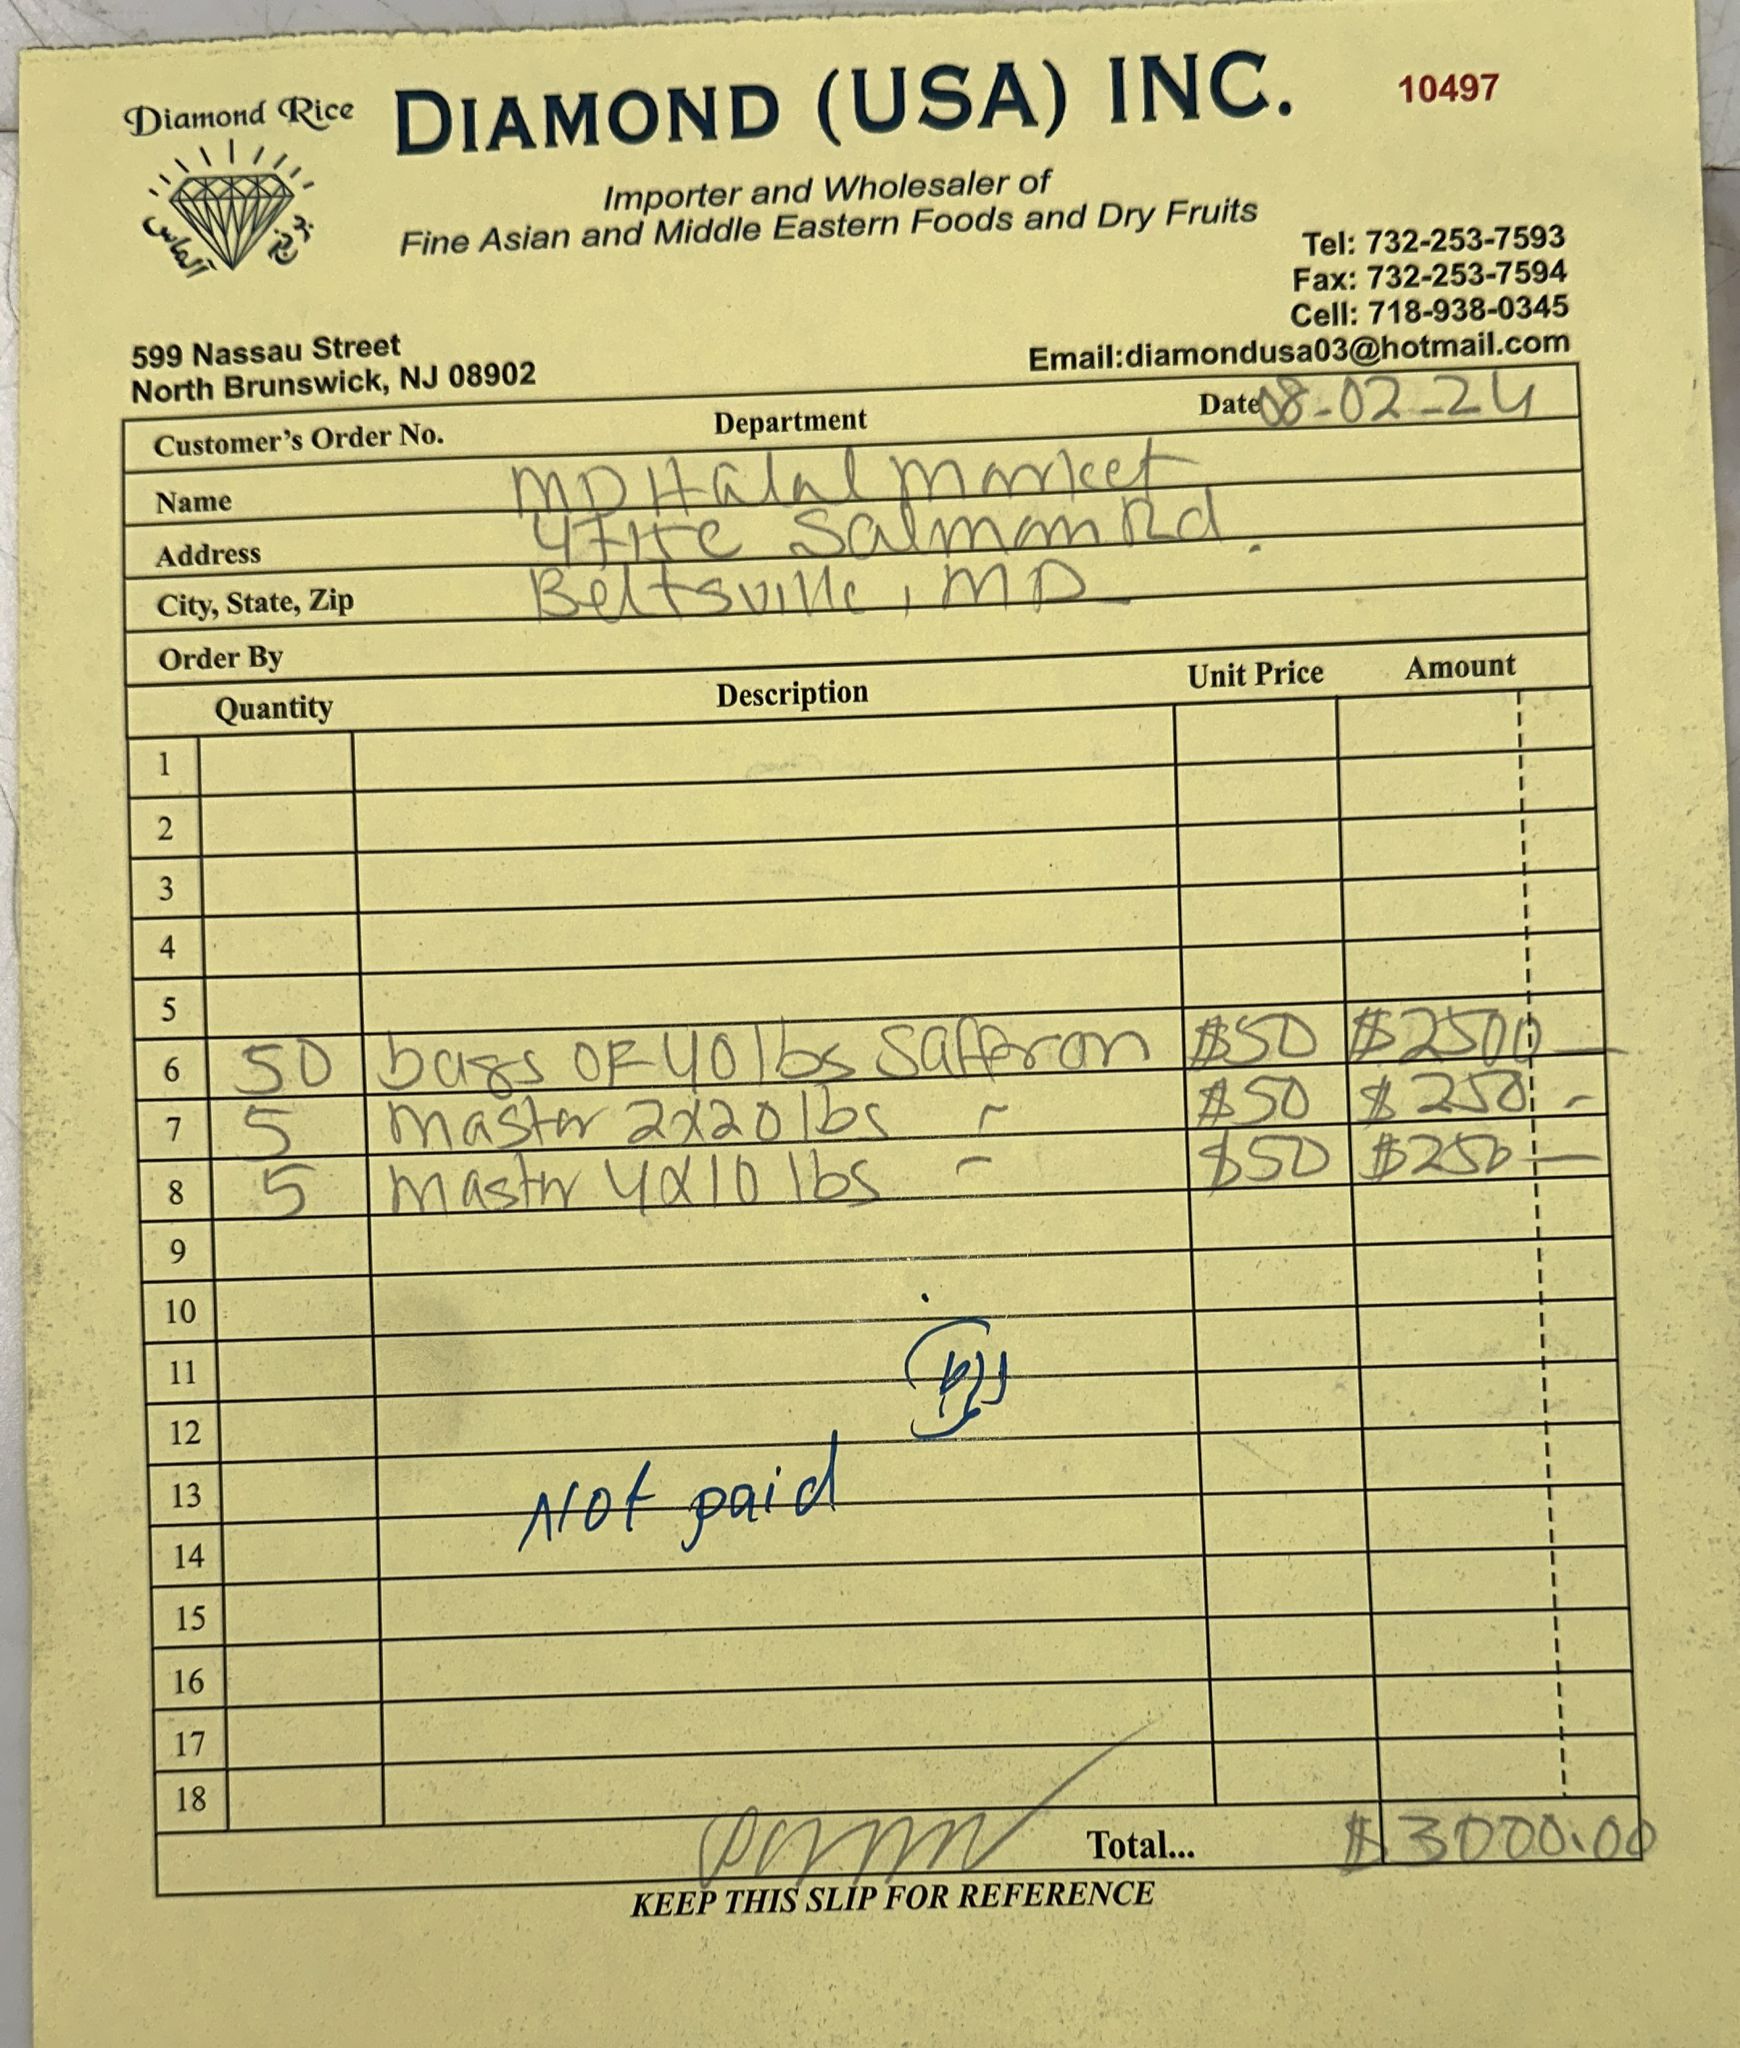 Diamond Rice
DIAMOND (USA) INC.
10497
Importer and Wholesaler of
Fine Asian and Middle Eastern Foods and Dry Fruits
Tel: 732-253-7593
Fax: 732-253-7594
Cell: 718-938-0345
599 Nassau Street
North Brunswick, NJ 08902
Email:diamondusa03@hotmail.com
Customer's Order No. Department Date 08-02-24
Name MD Halal Market
Address Rd.
City, State, Zip Beltsville, MD
Order By
Quantity Description Unit Price Amount
1
2
3
4
5
6 50 bags OF 40 lbs Saffron $50 $2500 —
7 5 Master 2x20 lbs - $50 $250 -
8 5 Master 4x10 lbs - $50 $250 —
9
10
11
12
13 Not paid
14
15
16
17
18
Total... $3000.00
KEEP THIS SLIP FOR REFERENCE